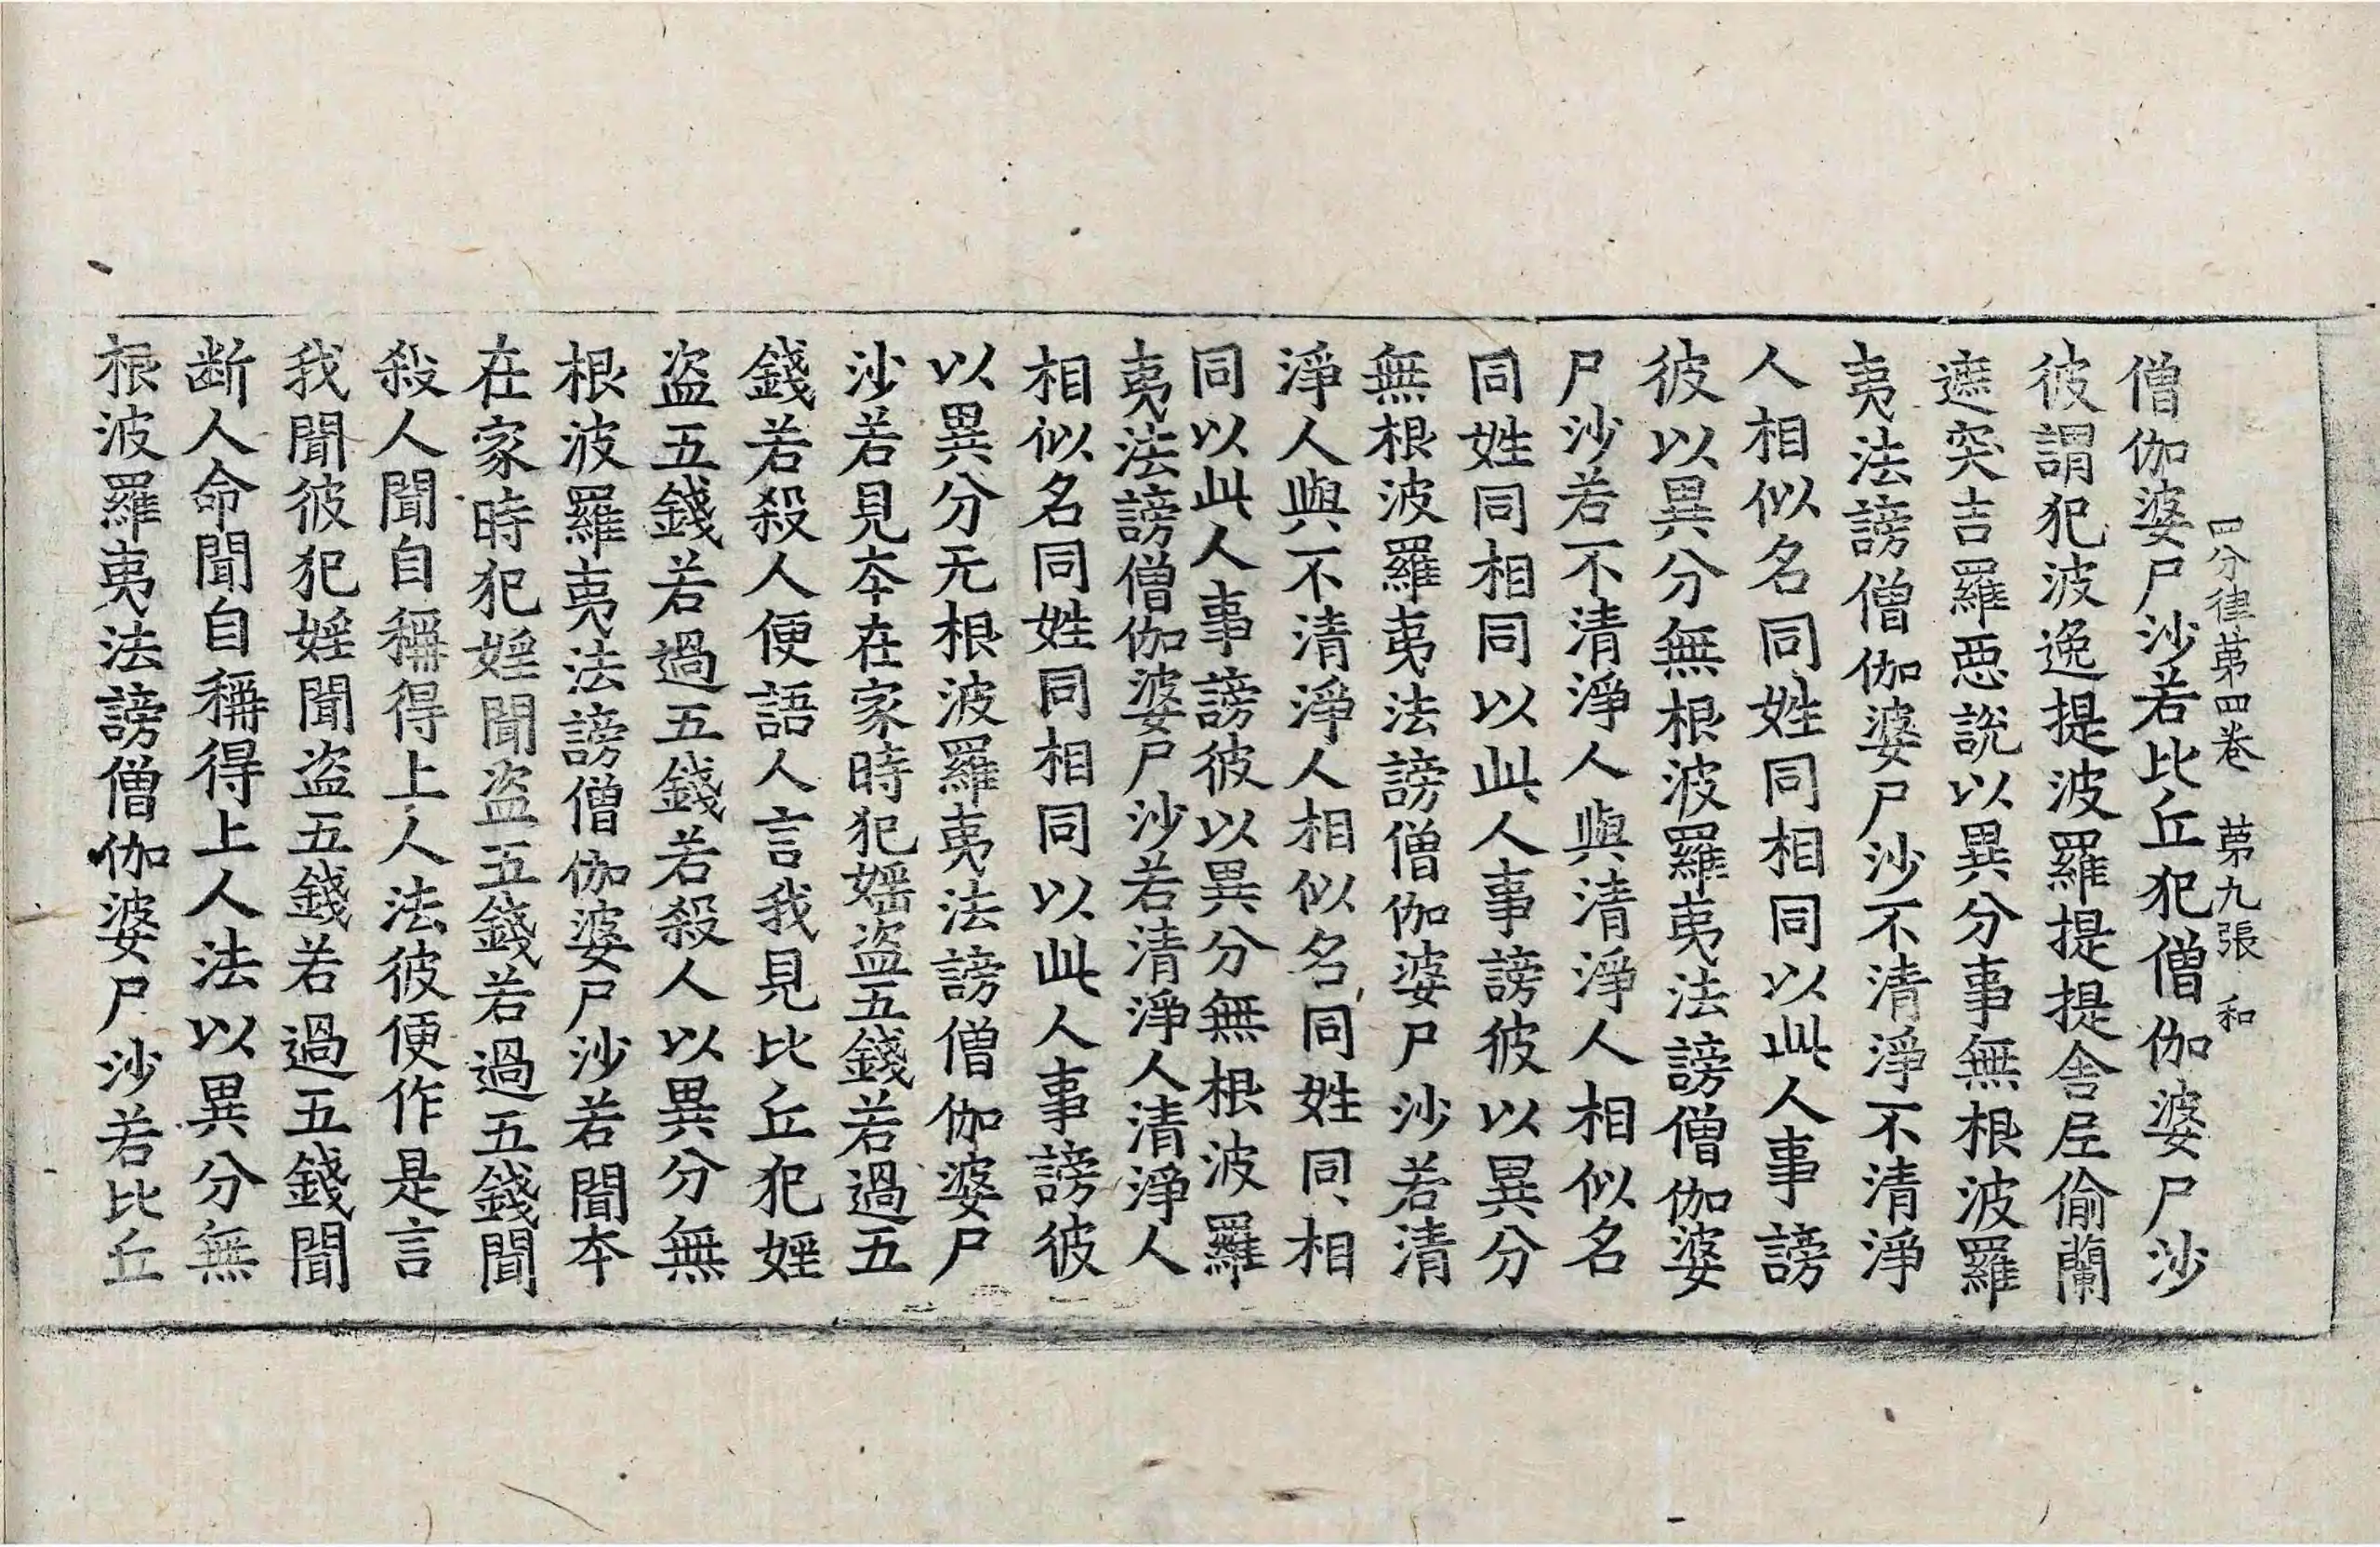 四分律苐四卷 苐九張 和
僧伽婆尸沙若比丘犯僧伽婆尸沙
彼謂犯波逸提波羅提提舍𡰱偷蘭
遮突吉羅惡說以異分事無根波羅
夷法謗僧伽婆尸沙不清淨不清淨
人相似名同姓同相同以此人事謗
彼以異分無根波羅夷法謗僧伽婆
尸沙若不清淨人與清淨人相似名
同姓同相同以此人事謗彼以異分
無根波羅夷法謗僧伽婆尸沙若清
淨人與不清淨人相似名同姓同相
同以此人事謗彼以異分無根波羅
夷法謗僧伽婆尸沙若清淨人清淨人
相似名同姓同相同以此人事謗彼
以異分无根波羅夷法謗僧伽婆尸
沙若見夲在家時犯婬盜五錢若過五
錢若殺人便語人言我見比丘犯婬
盜五錢若過五錢若殺人以異分無
根波羅夷法謗僧伽婆尸沙若聞夲
在家時犯婬聞盜五錢若過五錢聞
殺人聞自稱得上人法彼便作是言
我聞彼犯婬聞盜五錢若過五錢聞
断人命聞自稱得上人法以異分無
根波羅夷法謗僧伽婆尸沙若比丘